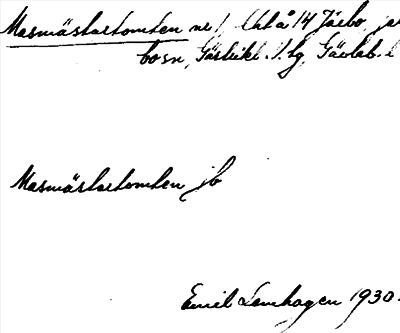 Masmästartomten nr 1, Utå 14 Järbo, jär
bo sn, Gästrikl. , Gävleb. l
Masmästartomten jb
Emil Lenhagen 1930.